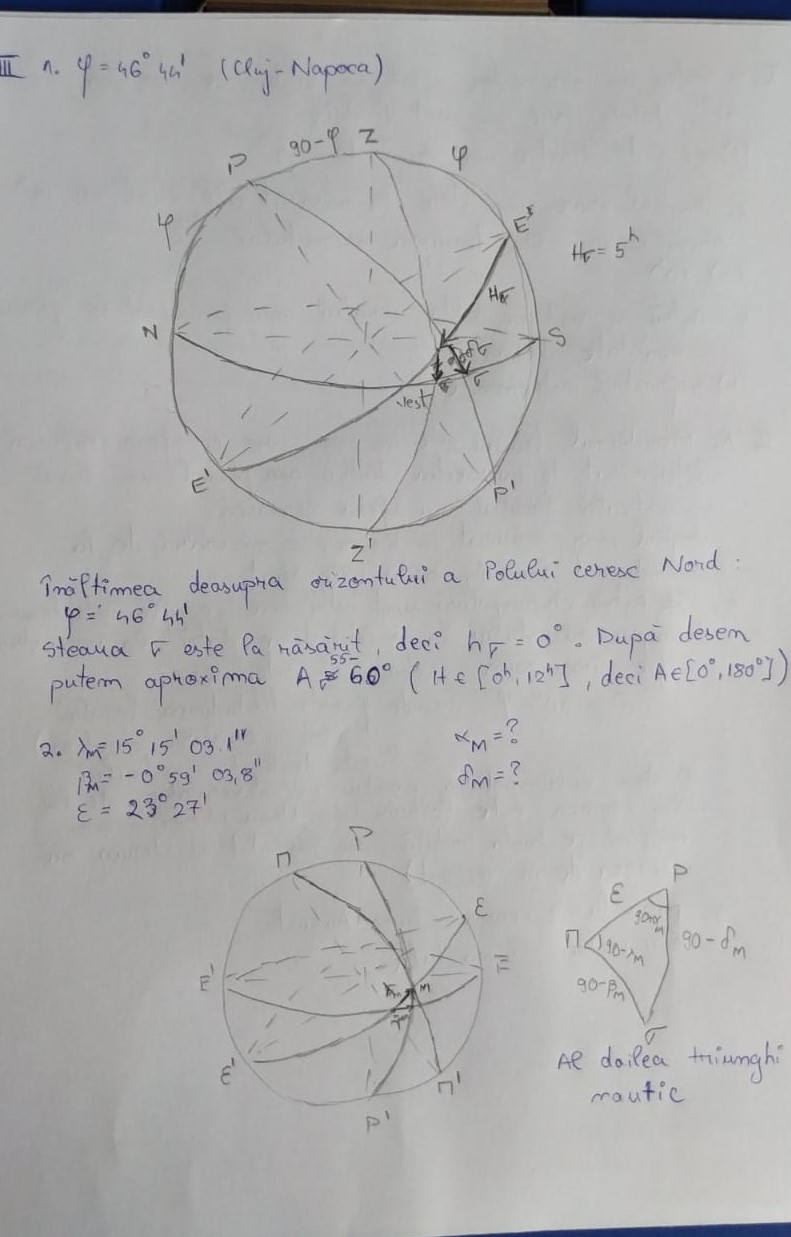 III 1. φ = 46° 44' (Cluj-Napoca)
90-φ Z
P φ
φ E*
H_σ = 5^h
H_σ
N S
δ_σ
σ
Vest
E' P'
Z'
Înălțimea deasupra orizontului a Polului ceresc Nord :
φ = 46° 44'
Steaua σ este la răsărit, deci h_σ = 0°. După desen
55-
putem aproxima A_σ ≈ 60° ( H ∈ [0^h, 12^h], deci A ∈ [0°, 180°])
2. λ_M = 15° 15' 03.1"
α_M = ?
β_M = -0° 59' 03,8"
δ_M = ?
ε = 23° 27'
Π P
ε
E' M E
ε' Π'
P'
P
ε
90+α_M
Π 90-λ_M 90-δ_M
90-β_M
σ
Al doilea triunghi
nautic